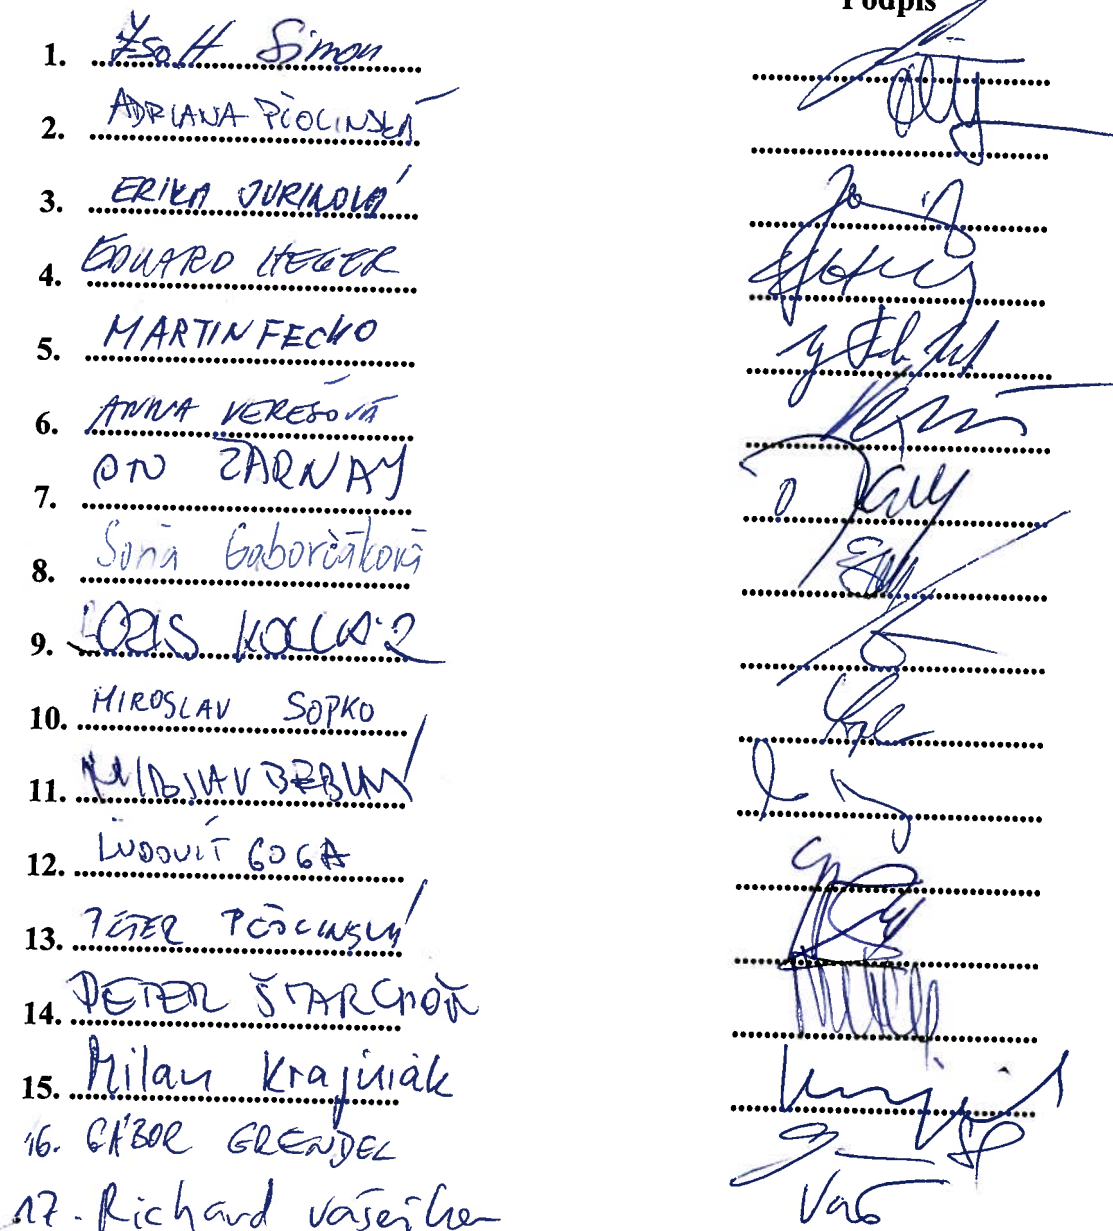 Podpis
1. Zsolt Simon
2. ADRIANA PČOLINSKÁ
3. ERIKA JURINOVÁ
4. EDUARD HEGER
5. MARTIN FECKO
6. ANNA VEREŠOVÁ
7. OTO ŽARNAY
8. Soňa Gaborčáková
9. KOLLÁR
10. MIROSLAV SOPKO
11.
12. ĽUDOVÍT GOGA
13. PETER PČOLINSKÝ
14. PETER ŠTARCHOŇ
15. Milan Krajniak
16. GÁBOR GRENDEL
17. Richard Vašečka